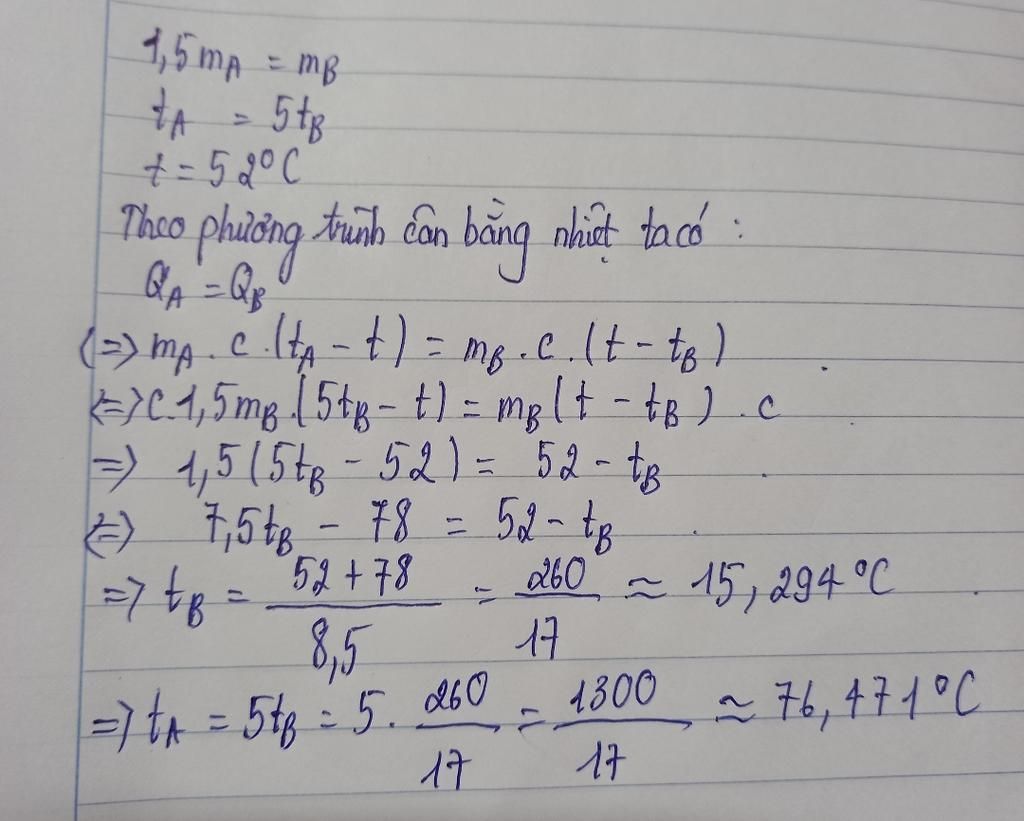 1,5mA = mB
tA = 5tB
t = 52°C
Theo phương trình cân bằng nhiệt ta có :
QA = QB
(=> mA . c . (tA - t) = mB . c . (t - tB)
<=> c. 1,5mB. (5tB - t) = mB (t - tB) . c
=> 1,5 (5tB - 52) = 52 - tB
<=> 7,5tB - 78 = 52 - tB
=> tB = (52 + 78)/8,5 = 260/17 ≈ 15,294°C
=> tA = 5tB = 5. 260/17 = 1300/17 ≈ 76,471°C